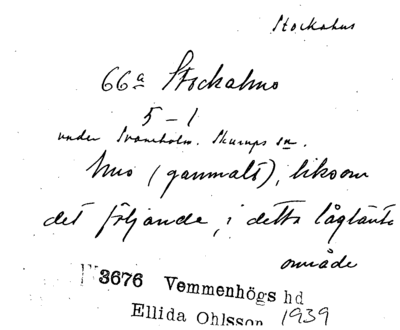 Stockahus
66a Stockahus
5-1
under Svaneholm. Skurups sn.
hus (gammalt), liksom
det följande, i detta låglänta
område
3676 Vemmenhögs hd
Ellida Ohlsson 1939